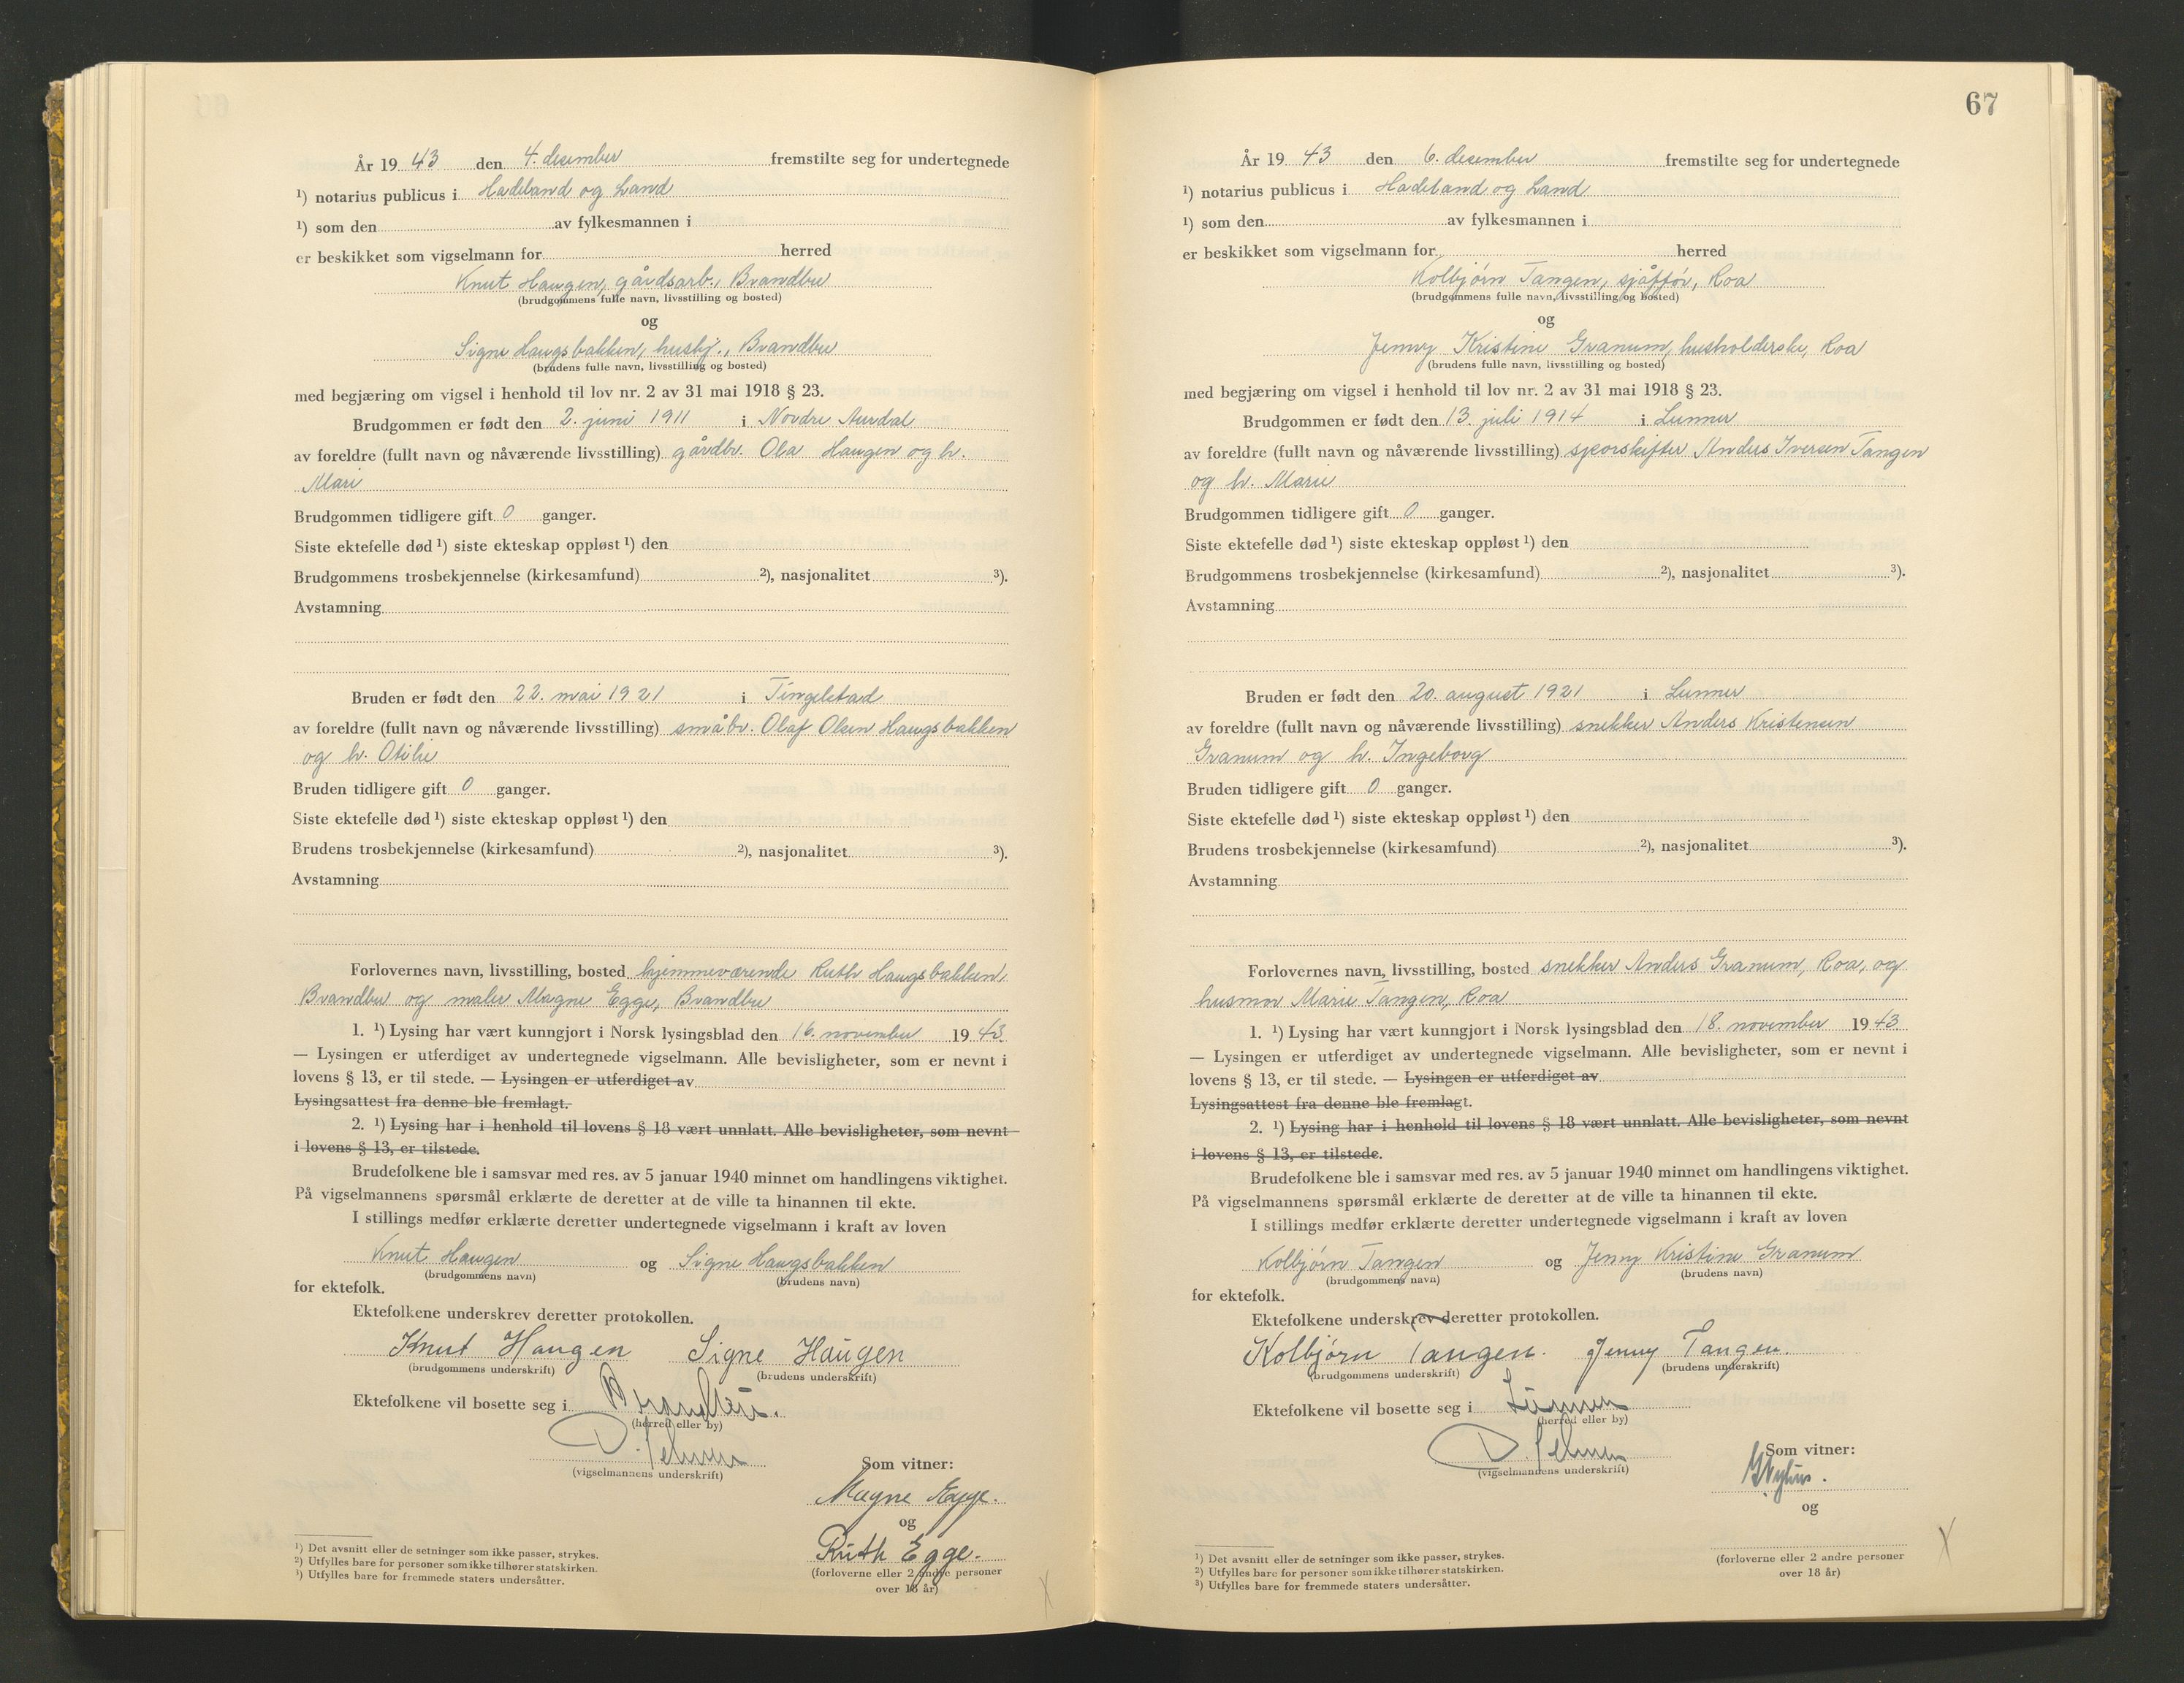 År 19 43 den 4. desember fremstilte seg for undertegnede
¹) notarius publicus i Hadeland og Land
¹) som den av fylkesmannen i
er beskikket som vigselmann for herred
Knut Haugen, gårdsarb., Brandbu
(brudgommens fulle navn, livsstilling og bosted)
og
Signe Haugsbakken, hushj., Brandbu
(brudens fulle navn, livsstilling og bosted)
med begjæring om vigsel i henhold til lov nr. 2 av 31 mai 1918 § 23.
Brudgommen er født den 2. juni 1911 i Nordre Aurdal
av foreldre (fullt navn og nåværende livsstilling) gårdbr. Ola Haugen og h.
Mari
Brudgommen tidligere gift 0 ganger.
Siste ektefelle død ¹) siste ekteskap oppløst ¹) den
Brudgommens trosbekjennelse (kirkesamfund) ²), nasjonalitet ³).
Avstamning
Bruden er født den 22. mai 1921 i Tingelstad
av foreldre (fullt navn og nåværende livsstilling) småbr. Olaf Olsen Haugsbakken
og h. Otilie
Bruden tidligere gift 0 ganger.
Siste ektefelle død ¹) siste ekteskap oppløst ¹) den
Brudens trosbekjennelse (kirkesamfund) ²), nasjonalitet ³).
Avstamning
Forlovernes navn, livsstilling, bosted hjemmeværende Ruth Haugsbakken,
Brandbu og maler Magne Egge, Brandbu
1. ¹) Lysing har vært kunngjort i Norsk lysingsblad den 16. november 19 43.
— Lysingen er utferdiget av undertegnede vigselmann. Alle bevisligheter, som er nevnt i
lovens § 13, er til stede. — Lysingen er utferdiget av
Lysingsattest fra denne ble fremlagt.
2. ¹) Lysing har i henhold til lovens § 18 vært unnlatt. Alle bevisligheter, som nevnt
i lovens § 13, er tilstede.
Brudefolkene ble i samsvar med res. av 5 januar 1940 minnet om handlingens viktighet.
På vigselmannens spørsmål erklærte de deretter at de ville ta hinannen til ekte.
I stillings medfør erklærte deretter undertegnede vigselmann i kraft av loven
Knut Haugen og Signe Haugsbakken
(brudgommens navn) (brudens navn)
for ektefolk.
Ektefolkene underskrev deretter protokollen.
Knut Haugen Signe Haugen
(brudgommens underskrift) (brudens underskrift)
Ektefolkene vil bosette seg i Brandbu.
(herred eller by)
(vigselmannens underskrift)
Som vitner:
Magne Egge.
og
Ruth Egge.
(forloverne eller 2 andre personer
over 18 år)
¹) Det avsnitt eller de setninger som ikke passer, strykes.
²) Utfylles bare for personer som ikke tilhører statskirken.
³) Utfylles bare for fremmede staters undersåtter.
67
År 19 43 den 6. desember fremstilte seg for undertegnede
¹) notarius publicus i Hadeland og Land
¹) som den av fylkesmannen i
er beskikket som vigselmann for herred
Kolbjørn Tangen, sjåffør, Roa
(brudgommens fulle navn, livsstilling og bosted)
og
Jenny Kristine Granum, husholderske, Roa
(brudens fulle navn, livsstilling og bosted)
med begjæring om vigsel i henhold til lov nr. 2 av 31 mai 1918 § 23.
Brudgommen er født den 13. juli 1914 i Lunner
av foreldre (fullt navn og nåværende livsstilling) sporskifter Anders Iversen Tangen
og h. Marie
Brudgommen tidligere gift 0 ganger.
Siste ektefelle død ¹) siste ekteskap oppløst ¹) den
Brudgommens trosbekjennelse (kirkesamfund) ²), nasjonalitet ³).
Avstamning
Bruden er født den 20. august 1921 i Lunner
av foreldre (fullt navn og nåværende livsstilling) snekker Anders Kristensen
Granum og h. Ingeborg
Bruden tidligere gift 0 ganger.
Siste ektefelle død ¹) siste ekteskap oppløst ¹) den
Brudens trosbekjennelse (kirkesamfund) ²), nasjonalitet ³).
Avstamning
Forlovernes navn, livsstilling, bosted snekker Anders Granum, Roa, og
husmor Marie Tangen, Roa
1. ¹) Lysing har vært kunngjort i Norsk lysingsblad den 18. november 19 43
— Lysingen er utferdiget av undertegnede vigselmann. Alle bevisligheter, som er nevnt i
lovens § 13, er til stede. — Lysingen er utferdiget av
Lysingsattest fra denne ble fremlagt.
2. ¹) Lysing har i henhold til lovens § 18 vært unnlatt. Alle bevisligheter, som nevnt
i lovens § 13, er tilstede.
Brudefolkene ble i samsvar med res. av 5 januar 1940 minnet om handlingens viktighet.
På vigselmannens spørsmål erklærte de deretter at de ville ta hinannen til ekte.
I stillings medfør erklærte deretter undertegnede vigselmann i kraft av loven
Kolbjørn Tangen og Jenny Kristine Granum
(brudgommens navn) (brudens navn)
for ektefolk.
Ektefolkene underskrev deretter protokollen.
Kolbjørn Tangen. Jenny Tangen.
(brudgommens underskrift) (brudens underskrift)
Ektefolkene vil bosette seg i Lunner
(herred eller by)
(vigselmannens underskrift)
Som vitner:
og
(forloverne eller 2 andre personer
over 18 år)
¹) Det avsnitt eller de setninger som ikke passer, strykes.
²) Utfylles bare for personer som ikke tilhører statskirken.
³) Utfylles bare for fremmede staters undersåtter.